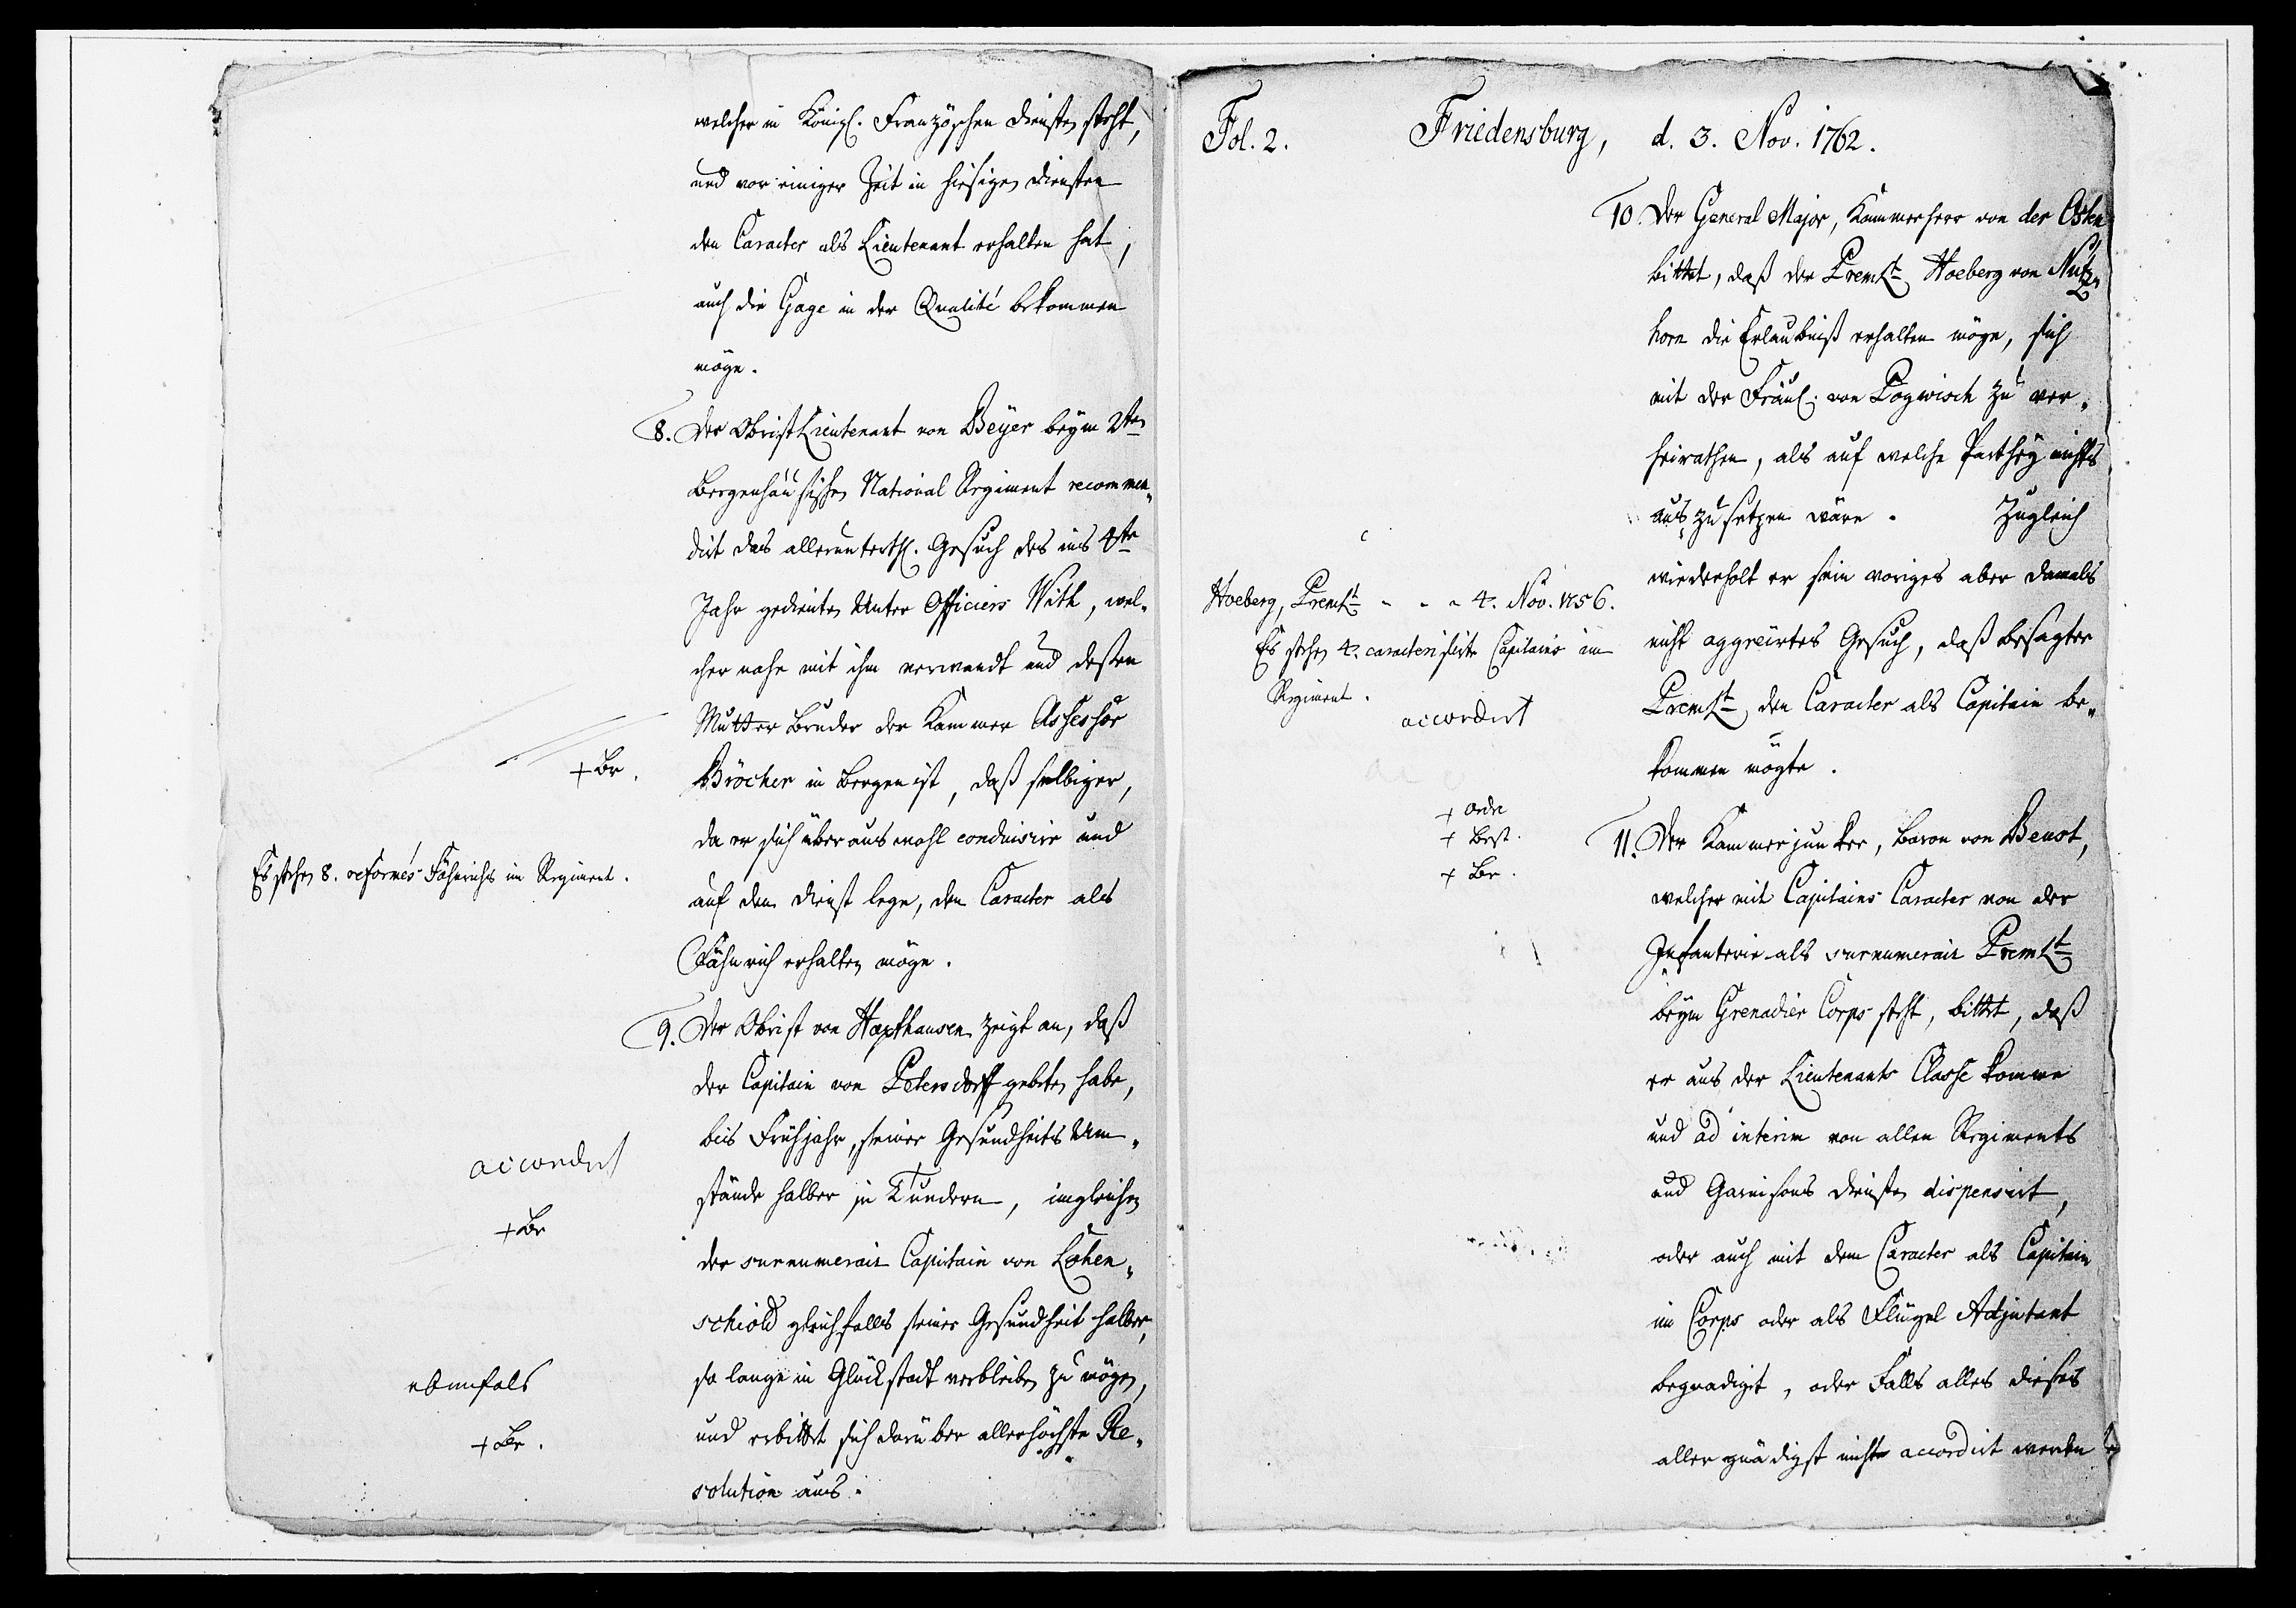 welcher in Königl. Französchen Diensten steht,
und vor einiger Zeit in hiesigen Diensten
den Caracter als Lieutenant erhalten hat,
auch die Gage in der Qualité bekommen
möge.
8. Der Obrist Lieutenant von Beyer beym 2ten
Bergenhuusischen National Regiment recommen„
dirt das alleruntertl. Gesuch des ins 4te
Jahr gedienten Unter Officiers With, wel„
cher nahe mit ihm verwandt und dessen
Mutter Bruder der Kammer Assessor
+ Br.
Bröcher in Bergen ist, daß selbiger,
da er sich überaus wohl conduisire und
Es stehen 8. reformés Fähnrichs im Regiment.
auf den Dienst lege, den Caracter als
Fähnrich erhalten möge.
9. Der Obrist von Haxthausen zeigt an, daß
der Capitain von Petersdorff gebeten habe,
bis Frühjahr, seiner Gesundheits Um„
accordirt
stände halber in Tundern, imgleichen
+ Br
der surnumerair Capitain von Lohen„
schiold gleichfalls seiner Gesundheit halber,
ebenfals
so lange in Glückstadt verbleiben zu mögen,
+ Br.
und erbittet sich darüber allerhöchste Re„
solution aus.
Fol. 2. Friedensburg, d. 3. Nov. 1762.
10. Der General Major, Kammerherr von der Osten
bittet, daß der PremLt Hoeberg von Nutz„
horn die Erlaubniß erhalten möge, sich
mit der Fräul. von Pogwisch zu ver„
heirathen, als auf welche Parthey nichts
auszusetzen wäre. Zugleich
wiederholt er sein voriges aber damals
Hoeberg, PremLt - - - 4. Nov. 1756.
nicht aggreirtes Gesuch, daß besagter
Es stehen 4. caracterisirte Capitains im
Regiment.
PremLt den Caracter als Capitain be„
accordirt
kommen mögte.
+ Ordre
+ Best.
+ Br.
11. Der Kammerjunker, Baron von Beust,
welcher mit Capitains Caracter von der
Infanterie als surnumerair PremLt
beym Grenadier Corps steht, bittet, daß
er aus der Lieutenants Classe komme
und ad interim von allen Regiments
und Garnisons Diensten dispensirt,
oder auch mit dem Caracter als Capitain
im Corps oder als Flügel Adjutant
begnadigt, oder Falls alles dieses
allergnädigst nicht accordirt werden